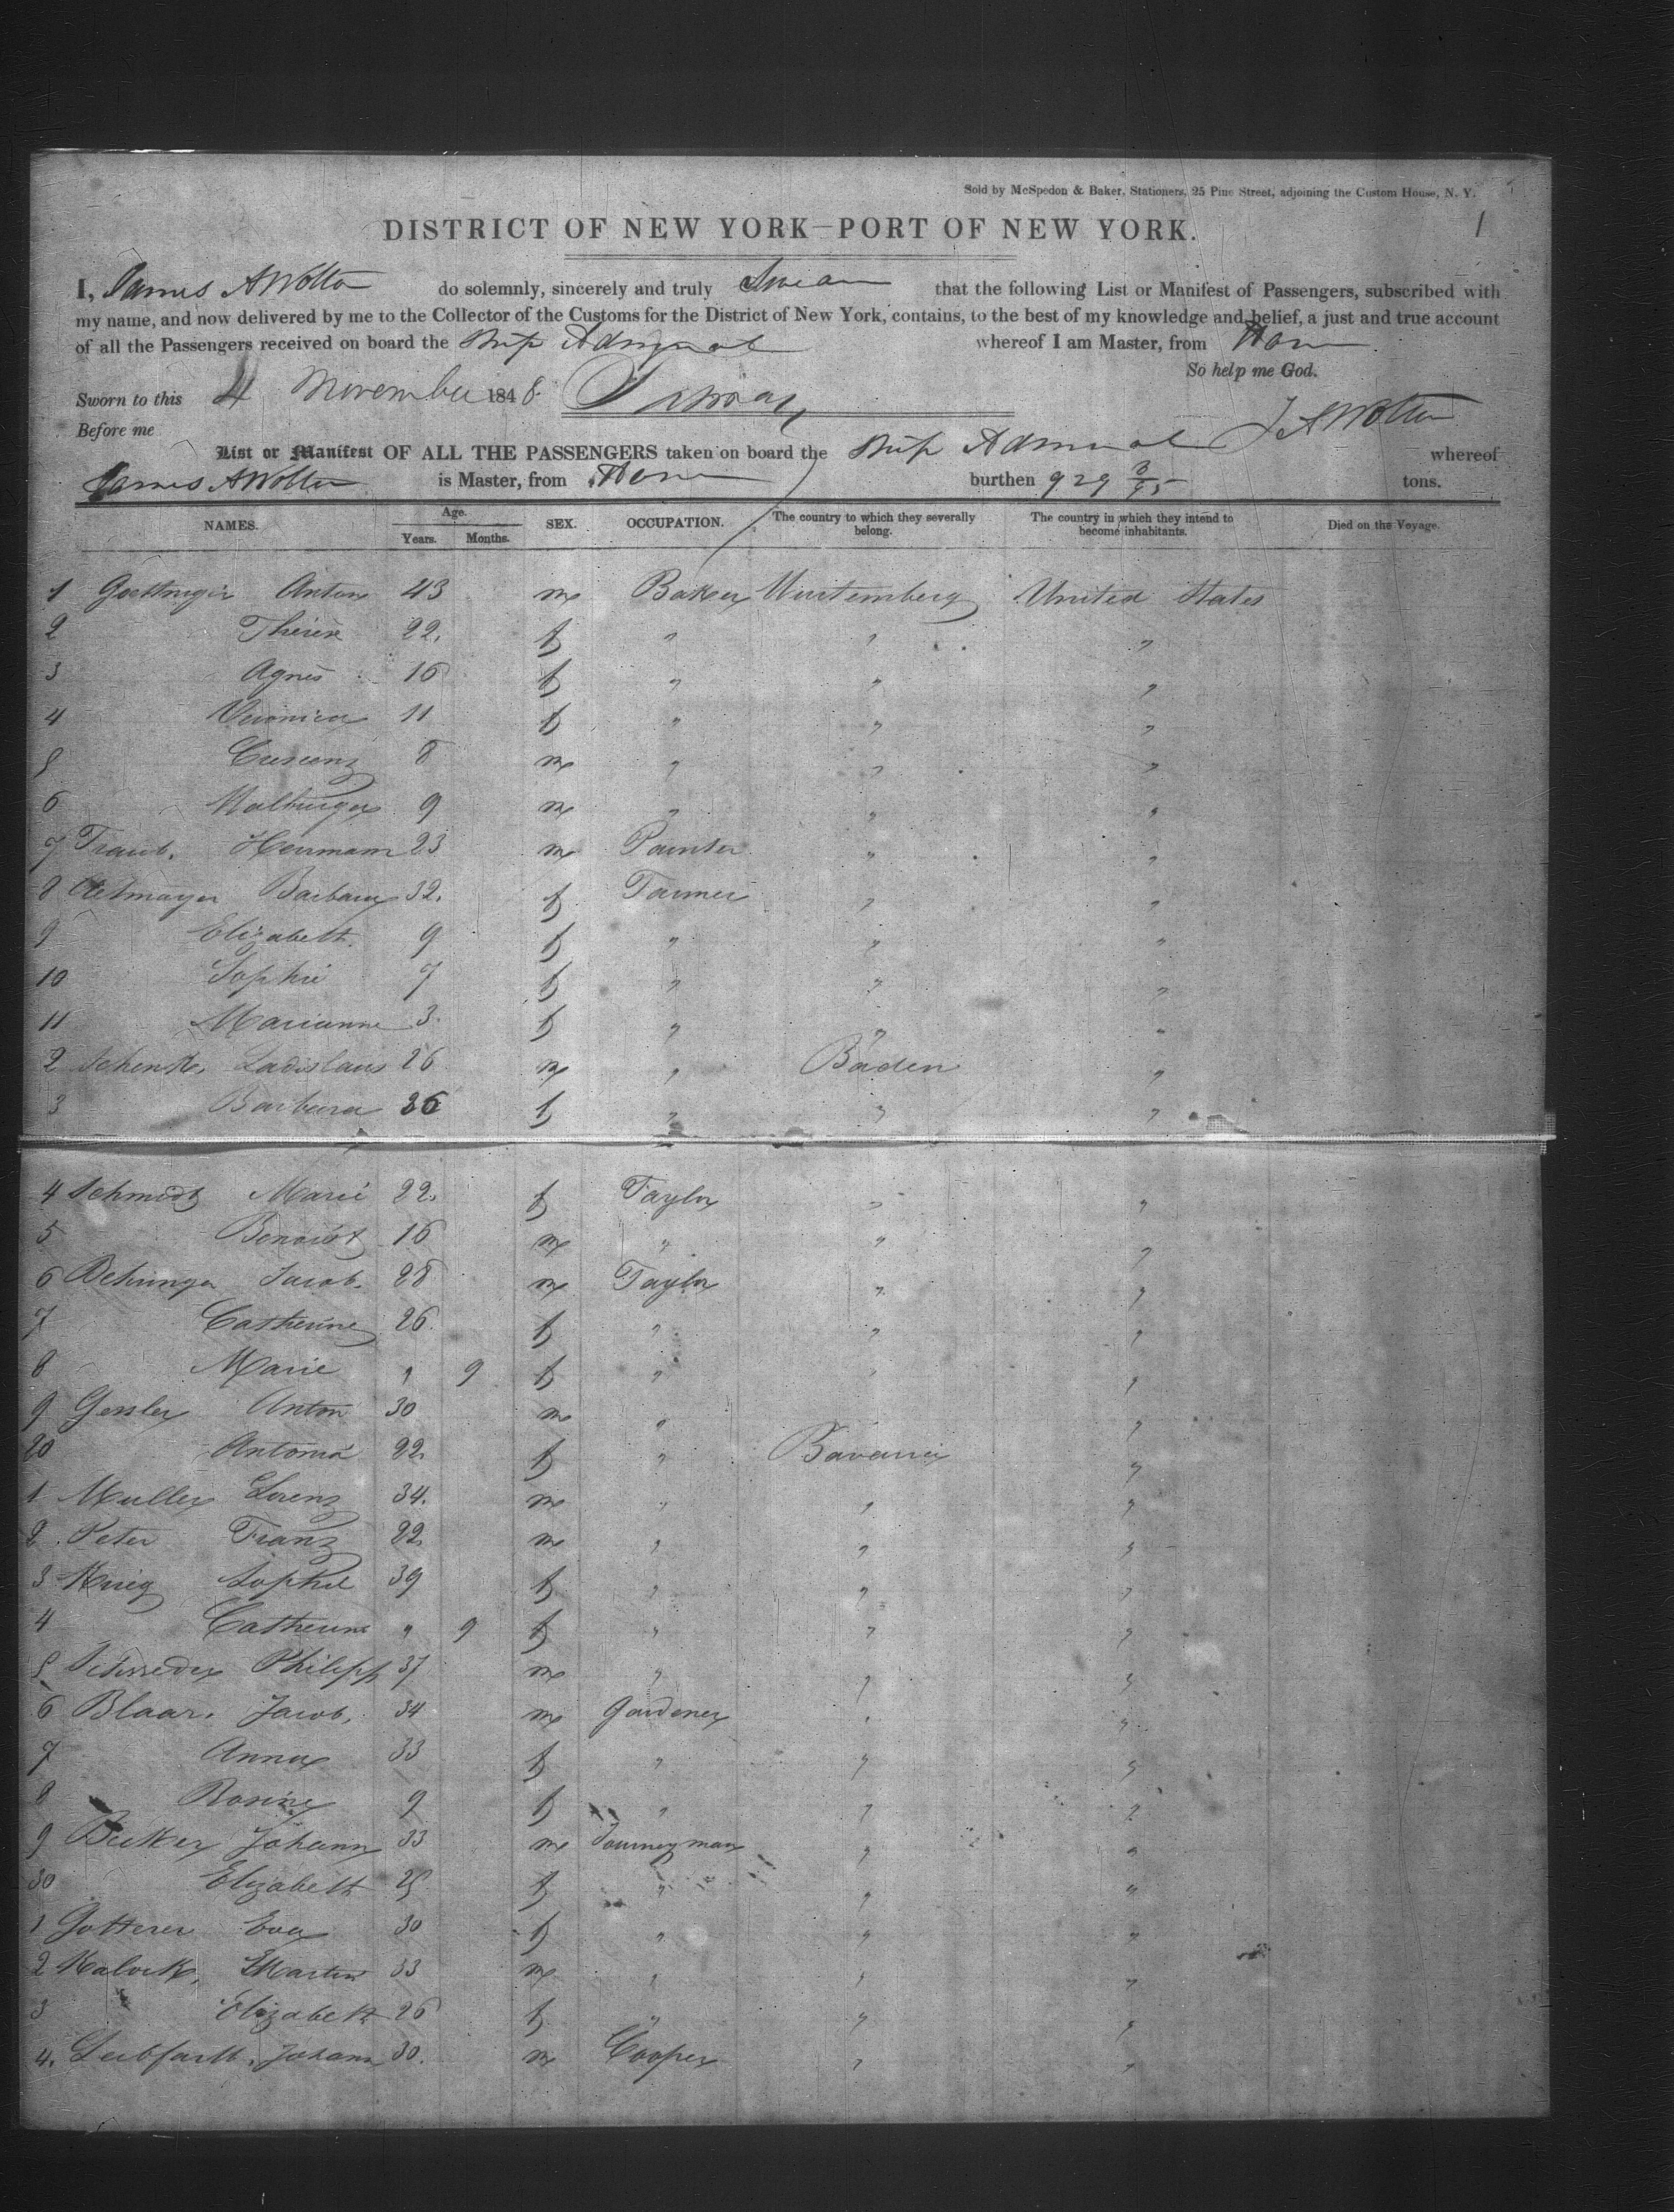 Sold by McSpedon & Baker, Stationers, 25 Pine Street, adjoining the Custom House, N. Y.
1
DISTRICT OF NEW YORK—PORT OF NEW YORK.
I, James A Wotton do solemnly, sincerely and truly Swear that the following List or Manifest of Passengers, subscribed with
my name, and now delivered by me to the Collector of the Customs for the District of New York, contains, to the best of my knowledge and belief, a just and true account
of all the Passengers received on board the Ship Admiral whereof I am Master, from Havre
So help me God.
Sworn to this 4 November 1848
Before me J A Wotton
List or Manifest OF ALL THE PASSENGERS taken on board the Ship Admiral whereof
James A Wotton is Master, from Havre burthen 929 3/95 tons.
NAMES. Age. Years. Months. SEX. OCCUPATION. The country to which they severally belong. The country in which they intend to become inhabitants. Died on the Voyage.
1 Anton 43 m Baker Wurtemberg United States
2 Therese 22. f " " "
3 Agnes 16 f " " "
4 Veronica 11 f " " "
5 Crescenz 8 m " " "
6 Walburga 9 m " " "
7 Traub. Hermann 23 m Painter " "
8 Barbara 32. f Farmer " "
9 Elizabeth 9 f " " "
10 Sophie 7 f " " "
11 Marianne 3 f " " "
2 Schenk, Ladislaus 26 m " Baden "
3 Barbara 26 f " " "
4 Schmidt Marie 22. f Taylor " "
5 Benoist 16 m " " "
6 Behringer Jacob. 28 m Taylor " "
7 Catherine 26. f " " "
8 Marie " 9 f " " "
9 Gessler Anton 30 m " "
20 Antonia 22 f " Bavaria "
1 Muller Lorenz 34. m " " "
2 Peter Franz 22 m " " "
3 Sophie 39 f " " "
4 Catherine " 9 f " " "
5 Schroeder Philipp 37 m " " "
6 Blaar. Jacob. 34 m Gardener " "
7 Anna 33 f " " "
8 Rosine 9 f " " "
9 Becker Johann 33 m Journeyman " "
30 Elizabeth 25 f " " "
1 Gotterer Eva 30 f " " "
2 Martin 33 m " " "
3 Elizabeth 26 f " " "
4. Leibfarth, Johann 30. m Cooper " "